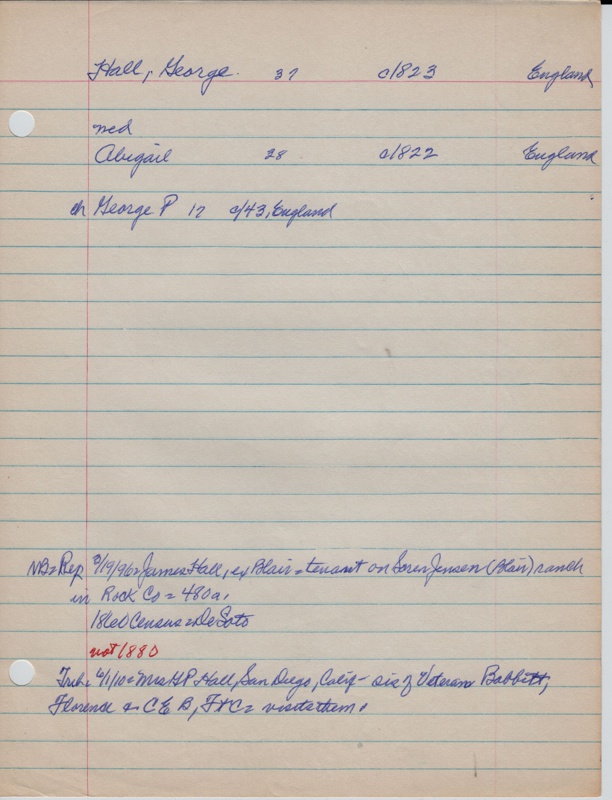 Hall, George. 37 c1823 England
med
Abigail 28 c1822 England
ch George P 17 c/43, England
NB = Rep 3/19/96 = James Hall, ex Blair = tenant on Soren Jensen (Blair) ranch
in Rock Co = 480a.
1860 Census = DeSoto
not 1880
Trib = 6/1/10 = Mrs G.P. Hall, San Diego, Calif - sis of Veteran Babbitt,
Florence & C E B, F & C = visits them.